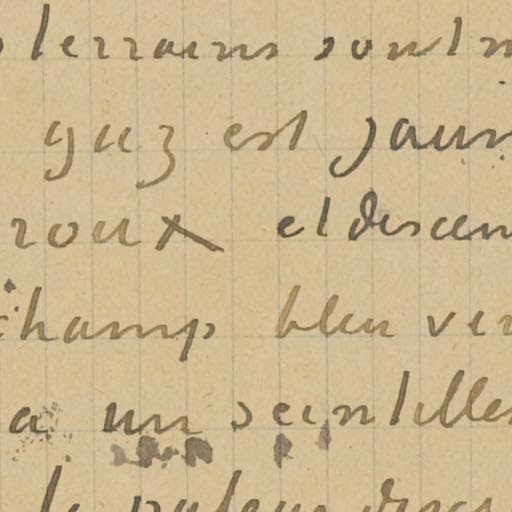 terrains sont
gaz est jaun
roux et descen
champ bleu ver
a un scintille
le